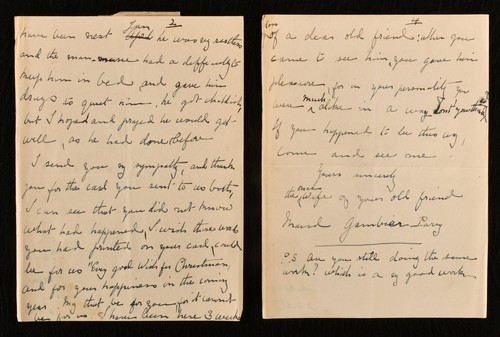 3
have been next he was vy restless
and the man-nurse had a difficulty to
keep him in bed and gave him
drugs to quiet him. he got
but I hoped and prayed he would get
well, as he had done before
I send you vy sympathy, and thank
you for the card you sent to us both,
I can see that you did not know
what had happened, I wish those words
you had printed on your card, could
be for us "Every good wish for Christmas,
and for your happiness in the coming
year. My that be for you, for it cannot
be for us I have been here 3 weeks
4
of a dear old friend: when you
came to see him, you gave him
pleasure, for in your personality you
were much alike in a way dont you think
If you happened to be this way,
come and see me
Yours sincerely
the wife of your old friend
Maud Gambier-Parry
P.S. are you still doing the same
work? which is a vy good work